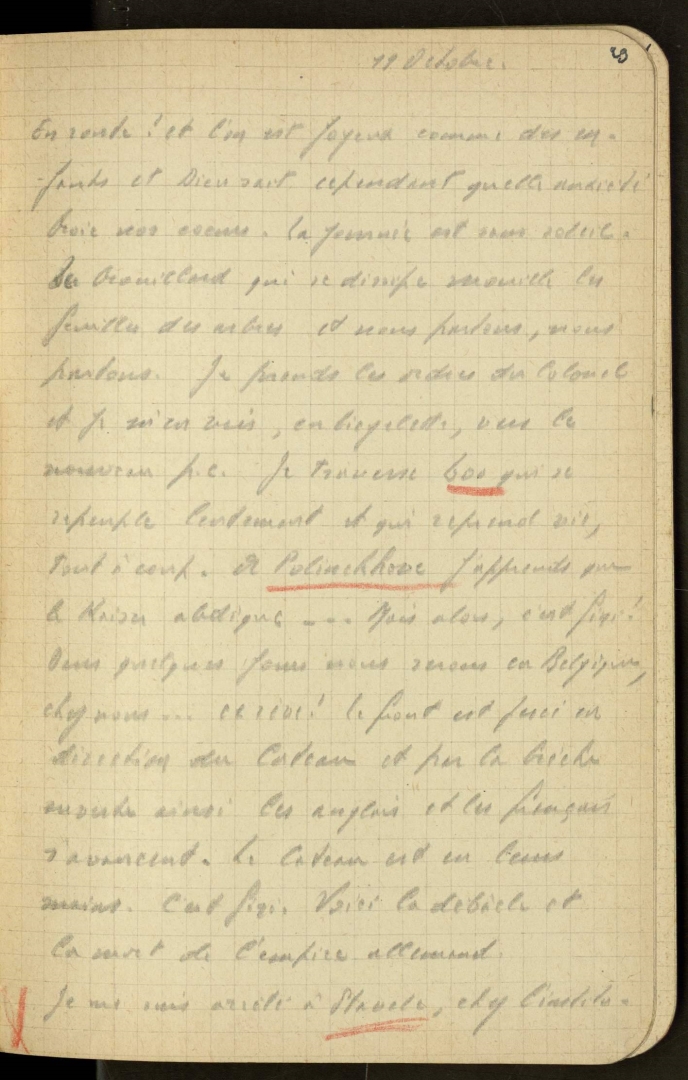 23
19 Octobre.
En route ! et l'on est joyeux comme des en-
-fants et Dieu sait cependant quelle anxiété
broie nos coeurs. La journée est sans soleil.
Le brouillard qui se dissipe mouille les
feuilles des arbres et nous partons, nous
partons. Je prends les ordres du Colonel
et je m'en vais, en bicyclette, vers le
nouveau p.c. Je traverse Loo qui se
repeuple lentement et qui reprend vie,
tout à coup. A Polinckhove j'apprends que
le Kaiser abdique .... Mais alors, c'est fini !
Dans quelques jours nous serons en Belgique,
chez nous ... ce rêve ! Le front est percé en
direction du Cateau et par la brèche
ouverte ainsi les anglais et les français
s'avancent. Le Cateau est en leurs
mains. C'est fini. Voici la débâcle et
la mort de l'empire allemand.
Je me suis arrêté à Stavele, chez l'institu-